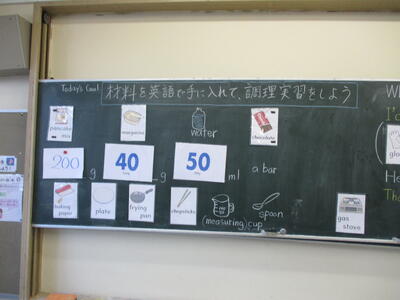 Today's Goal 材料を英語で手に入れて、調理実習をしよう
pancake mix
margarine
water
chocolate
200 g
40 g
50 ml
a bar
baking paper
plate
frying pan
chopsticks
(measuring) cup
spoon
gas stove